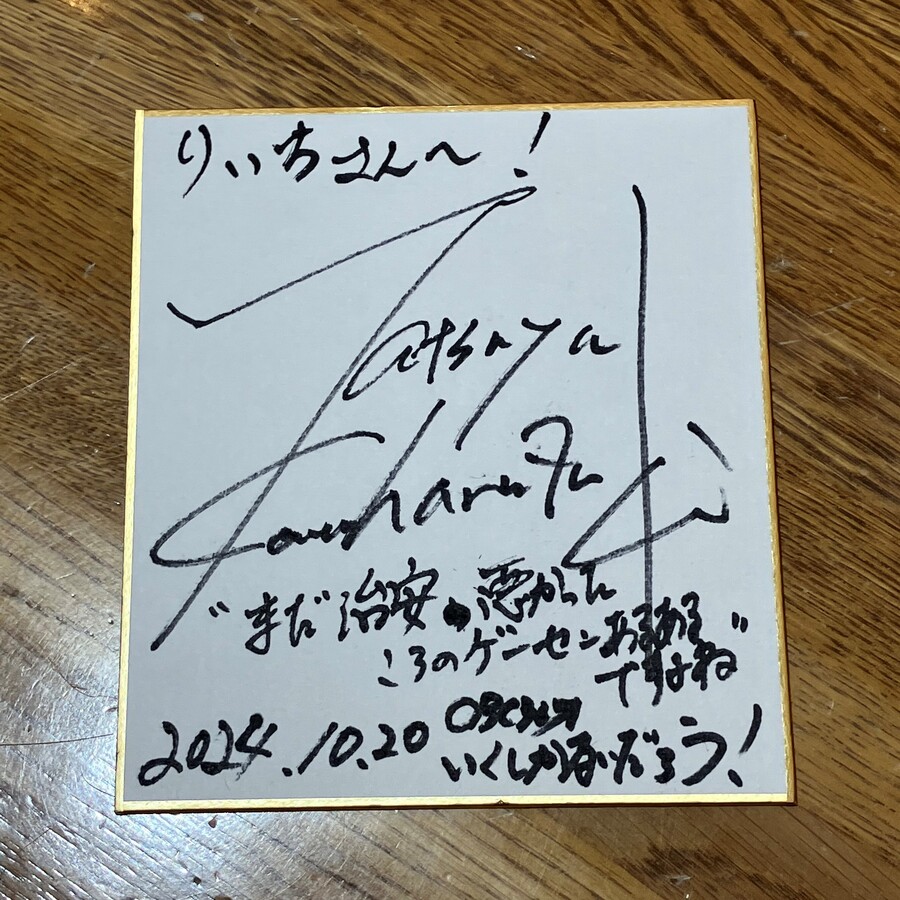 りぃちさんへ!
Tatsuya
"まだ治安悪かった
ころのゲーセンあるある
ですよね"
2024.10.20
いくしかないだろう!